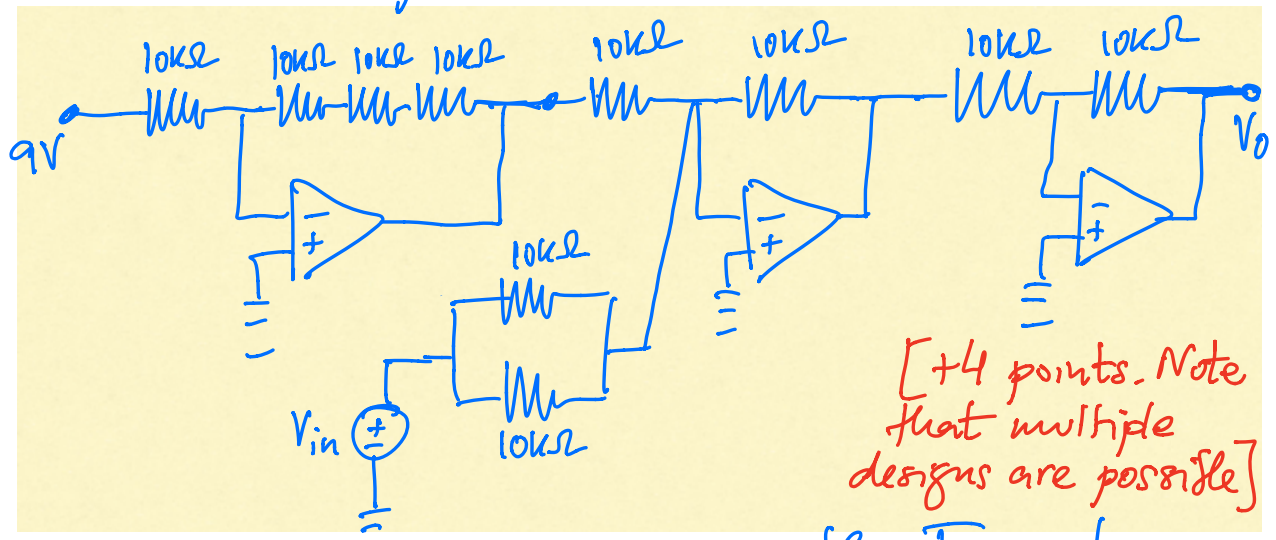 10KΩ 10KΩ 10KΩ 10KΩ 10KΩ 10KΩ 10KΩ 10KΩ
9V
Vo
−
+
−
+
−
+
10KΩ
Vin
+
−
10KΩ
[+4 points. Note
that multiple
designs are possible]